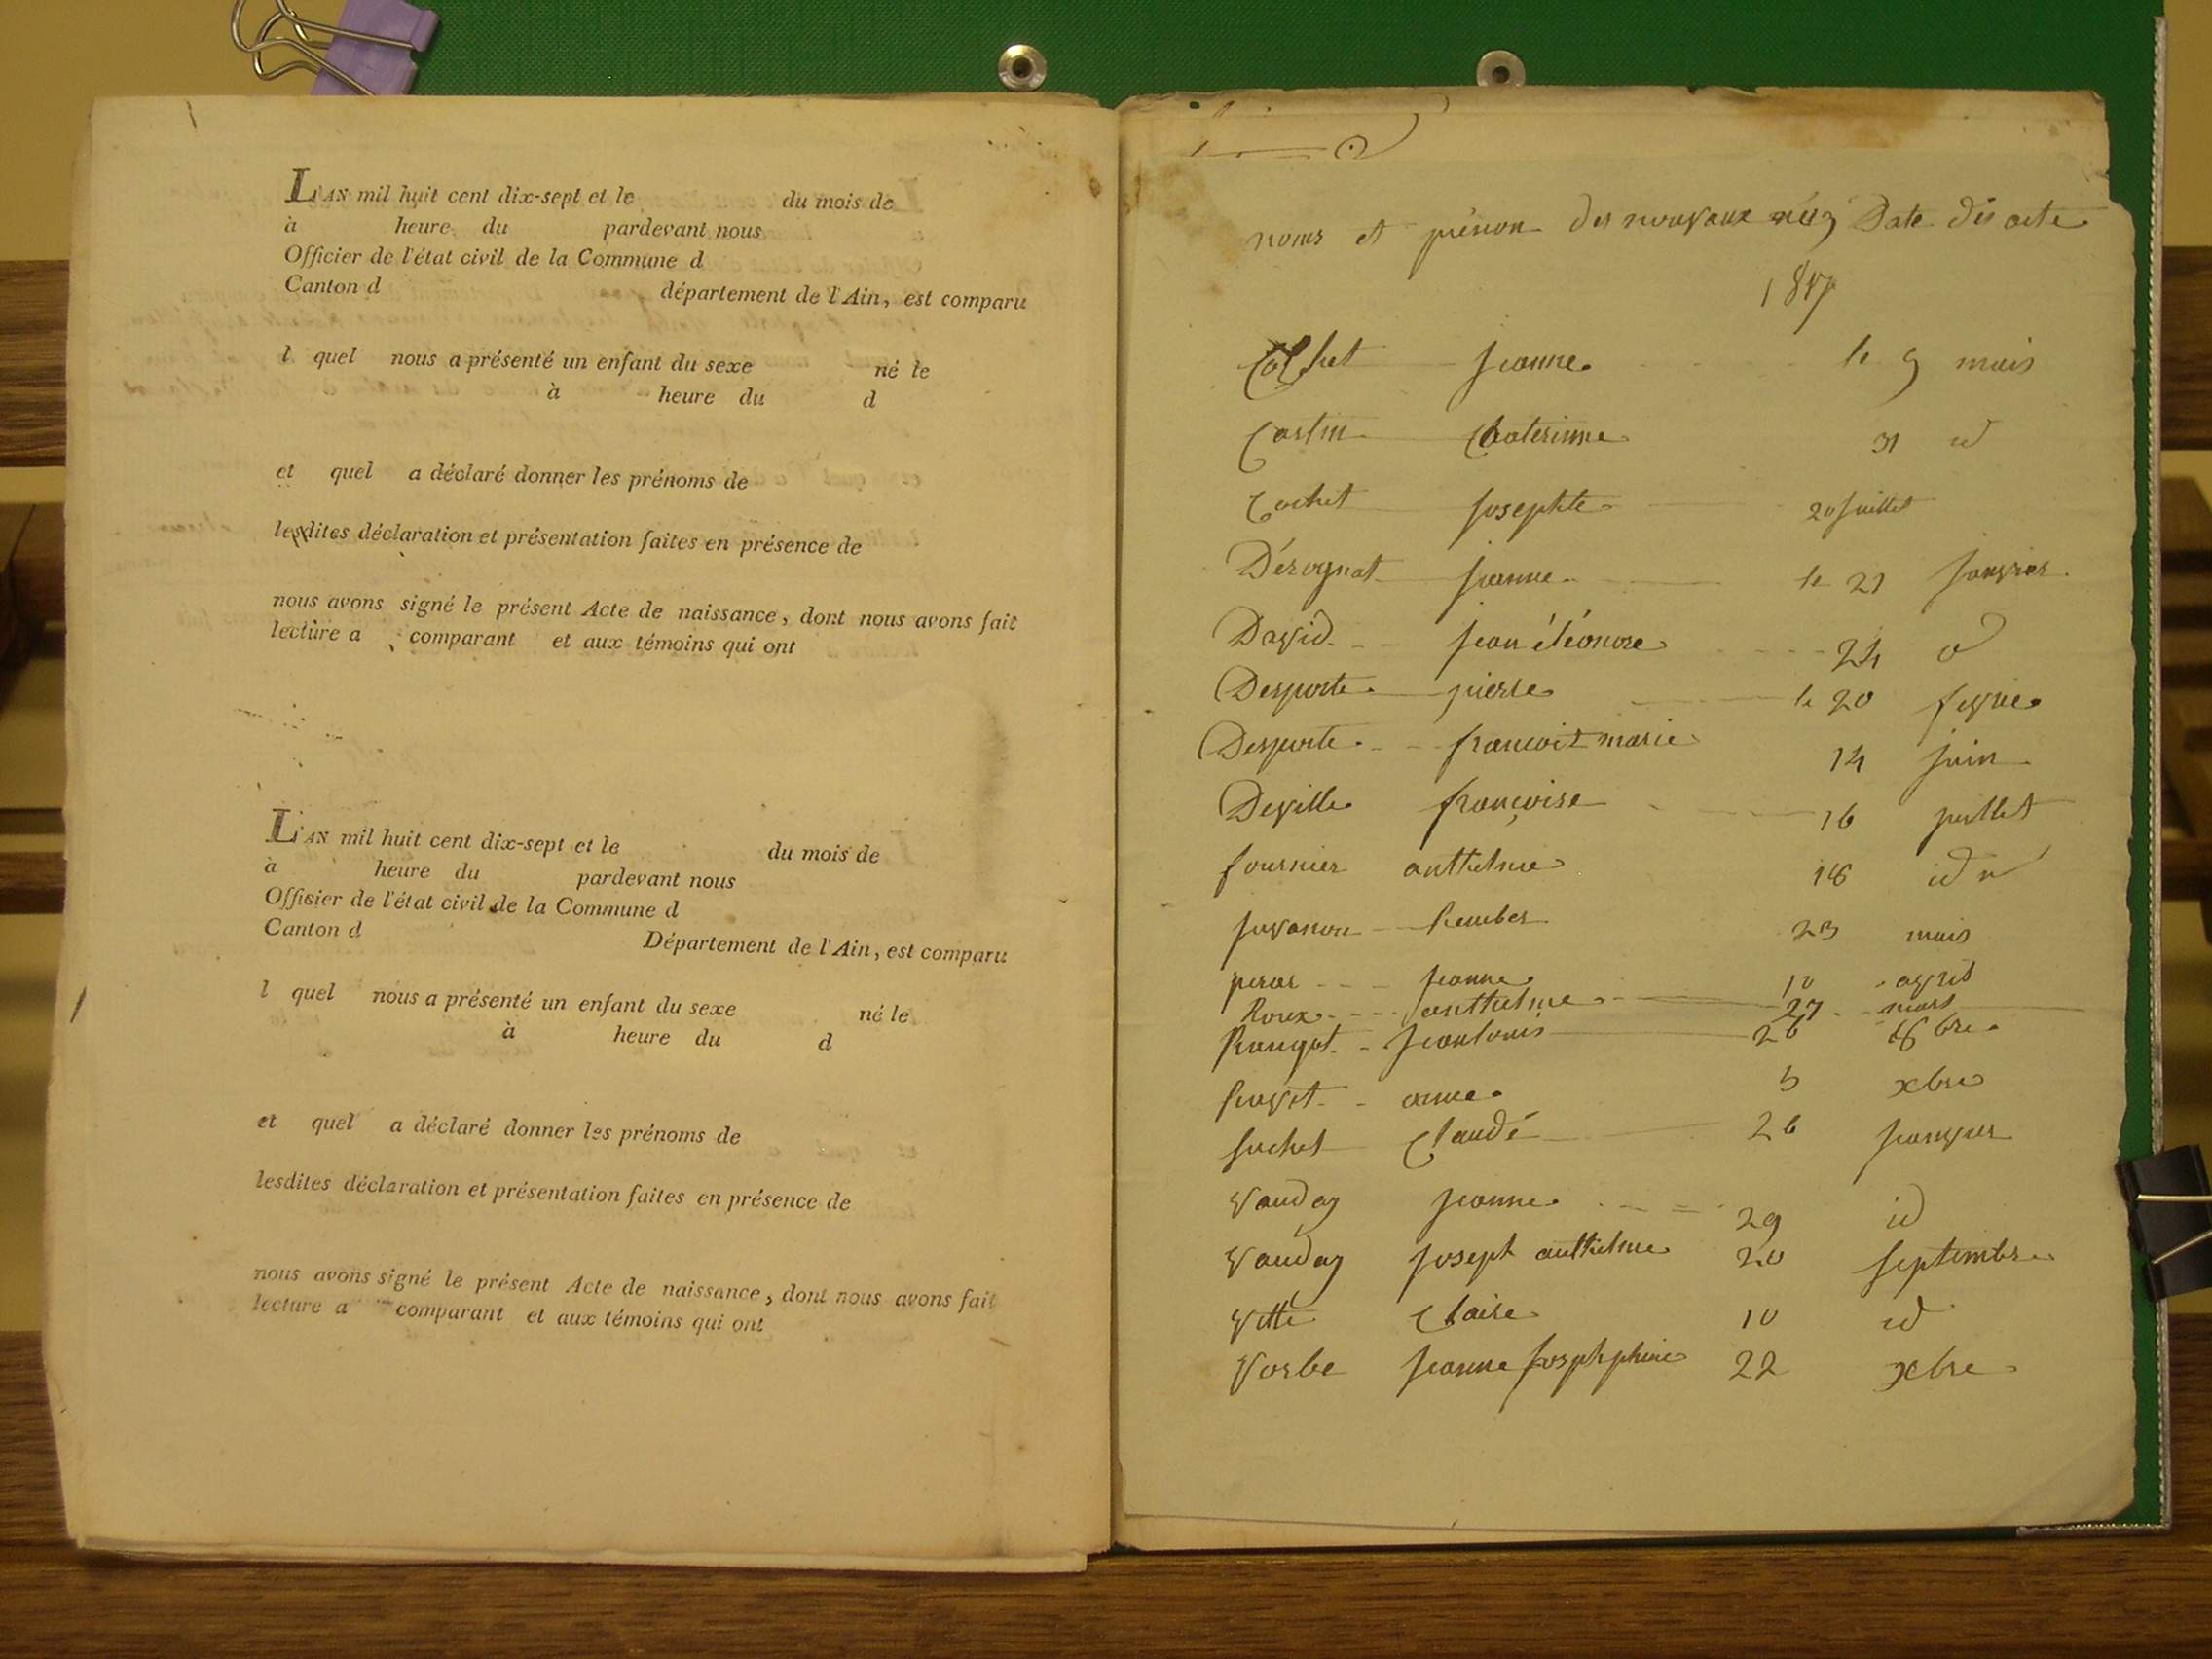 L'AN mil huit cent dix-sept et le du mois de
à heure du pardevant nous
Officier de l'état civil de la Commune d
Canton d département de l'Ain, est comparu
l quel nous a présenté un enfant du sexe né le
à heure du d
et quel a déclaré donner les prénoms de
lesdites déclaration et présentation faites en présence de
nous avons signé le présent Acte de naissance, dont nous avons fait
lecture a comparant et aux témoins qui ont
L'AN mil huit cent dix-sept et le du mois de
à heure du pardevant nous
Officier de l'état civil de la Commune d
Canton d Département de l'Ain, est comparu
l quel nous a présenté un enfant du sexe né le
à heure du d
et quel a déclaré donner les prénoms de
lesdites déclaration et présentation faites en présence de
nous avons signé le présent Acte de naissance, dont nous avons fait
lecture a comparant et aux témoins qui ont
noms et prénom des nouvaux néz Date des acte
1817
Cochet jeanne le 9 mais
Castin Caterinne 31 id
Cochet josephte 20 juillet
Dérognat jeanne le 21 janvier
David jean éléonore 24 d
Desporte pierre le 20 fevrie
Desporte francois marie 14 juin
Deville françoise 16 juillet
fournier anthelme 18 id
juvanon 23 mais
jeanne 10 avril
Roux anthelme 27 mars
jeanlouis 26 8bre
anne 5 xbre
Suchet Claude 26 janvier
Vauday jeanne 29 id
Vauday joseph anthelme 20 septembre
Vette Claire 10 id
Vorbe jeanne josphphine 22 xbre